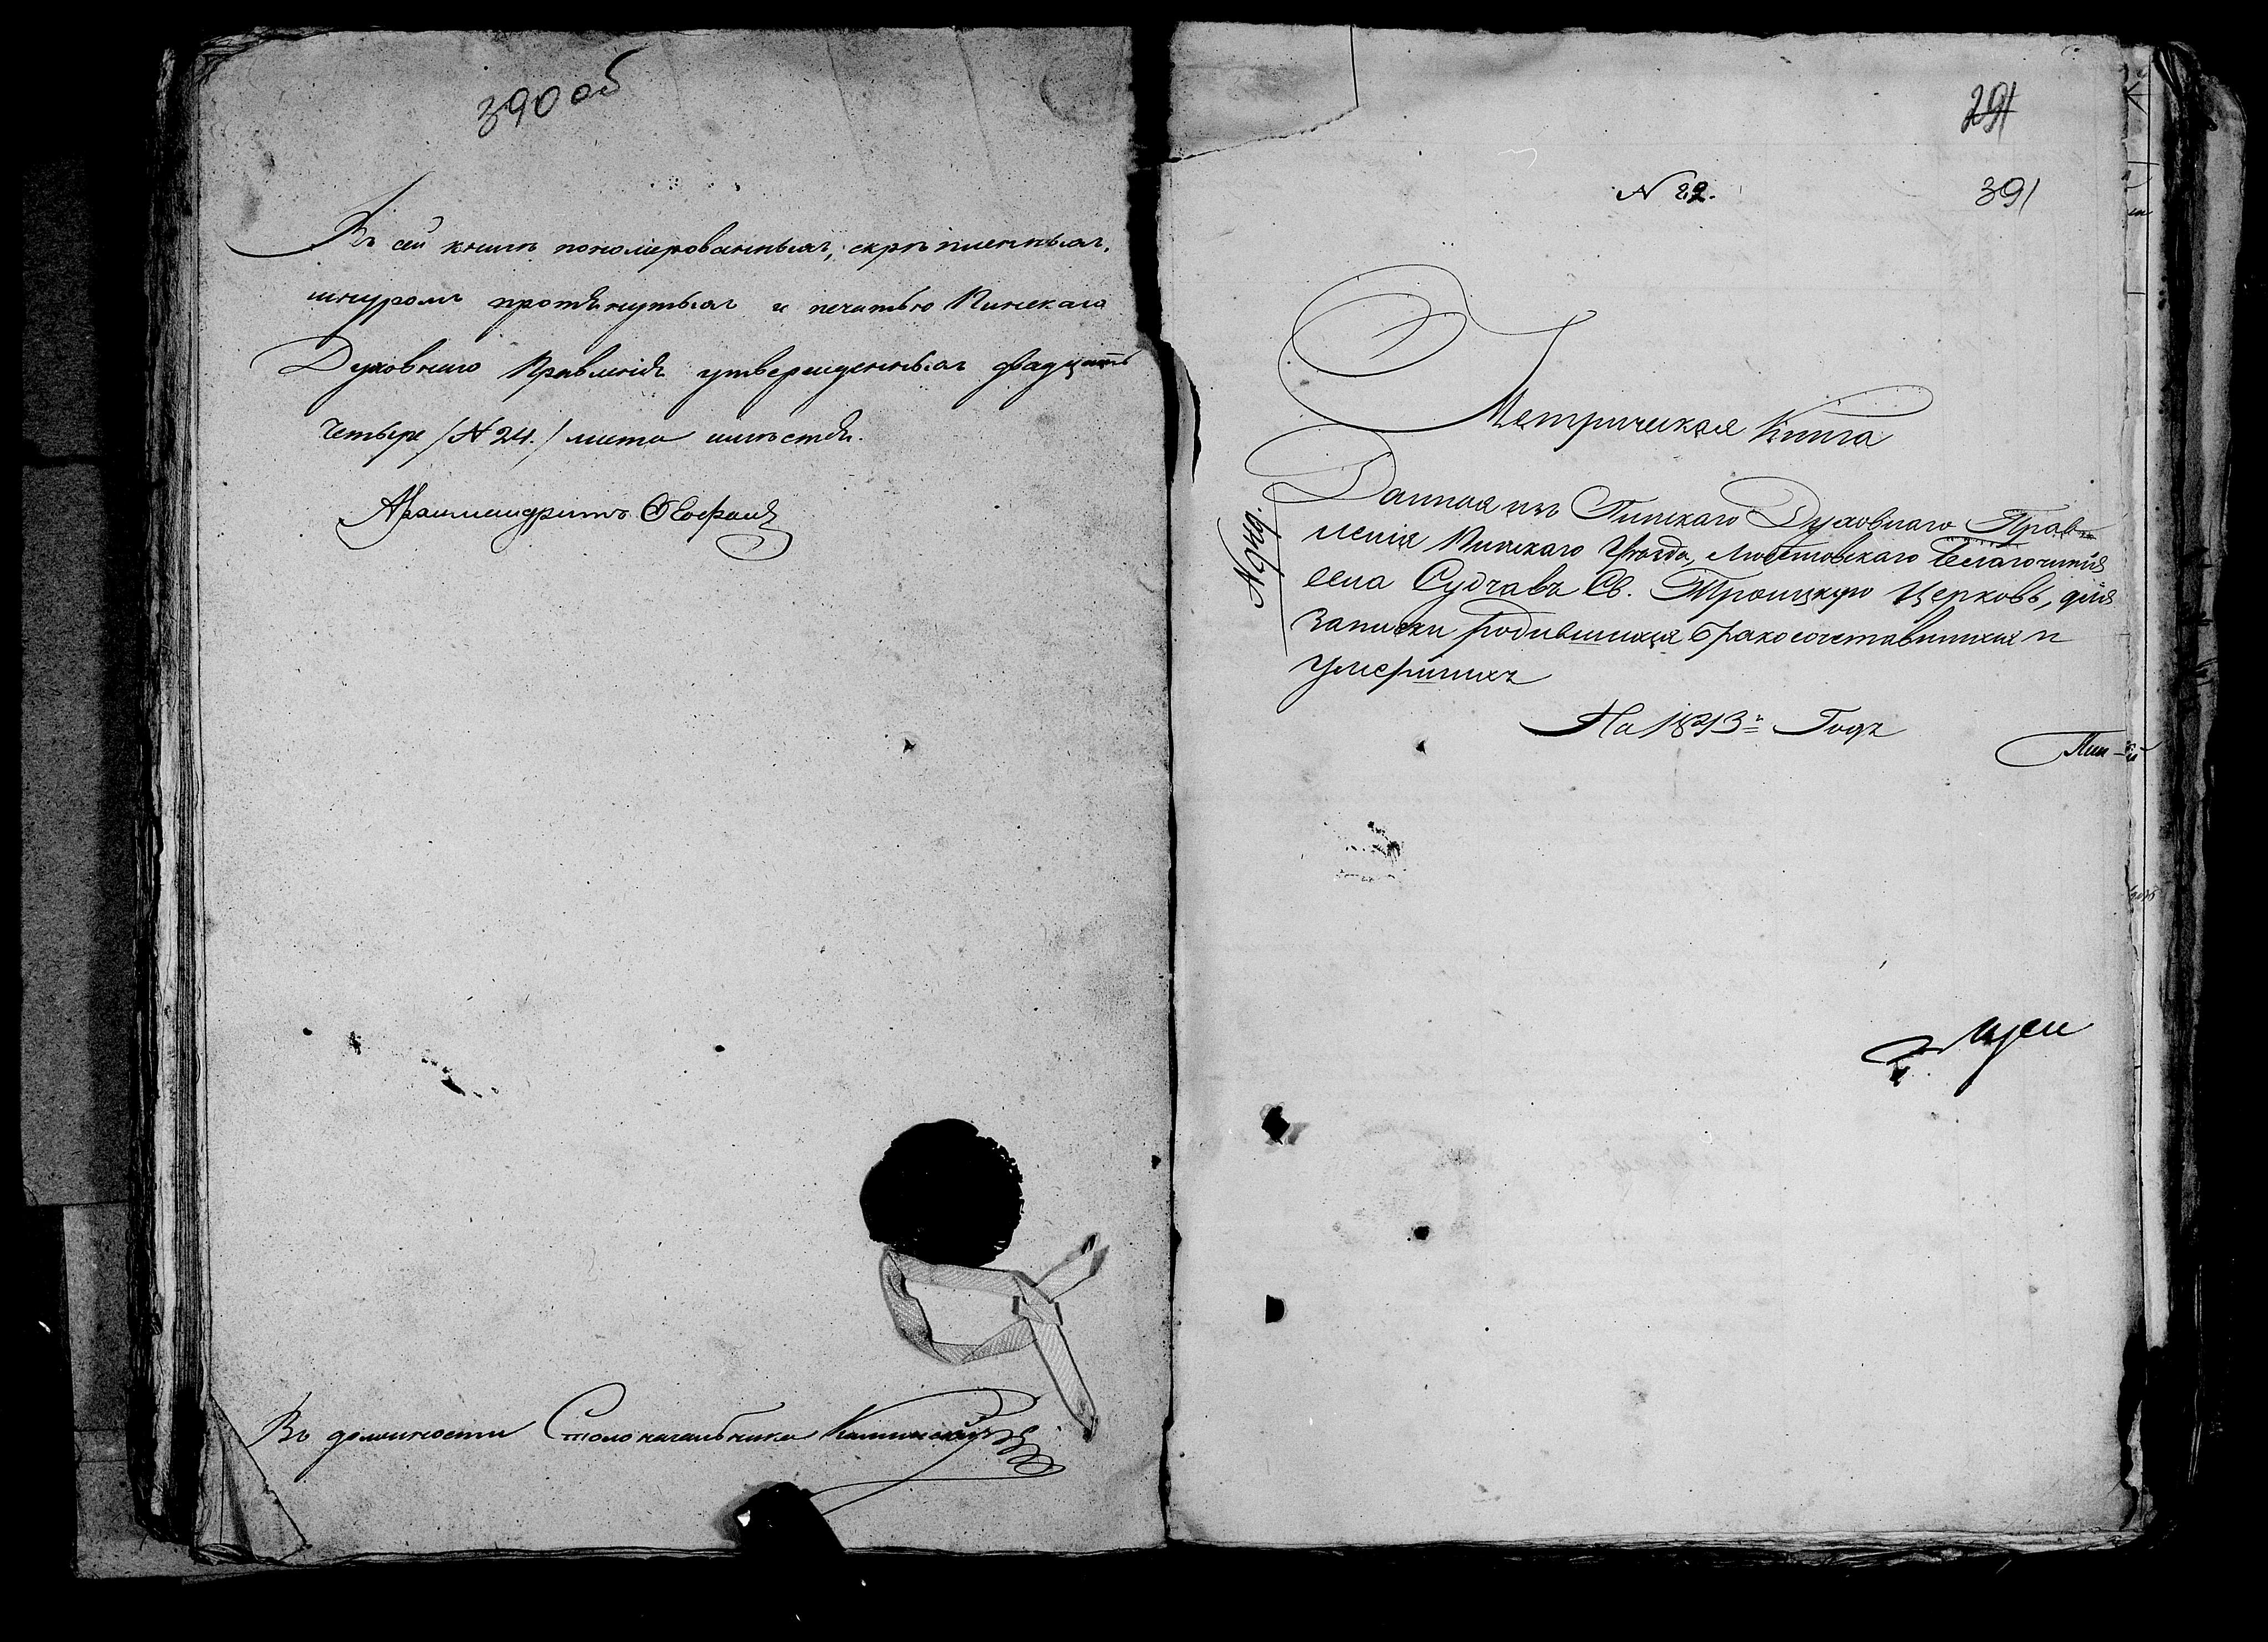 390 об
Въ сей книгѣ пономерованныхъ, скрѣпленныхъ,
шнуромъ протянутыхъ и печатью Пинскаго
Духовнаго Правленія утвержденныхъ двадцать
четыре /№ 24./ листа
Архимандритъ
Въ должности Столоначальника
291
№ 22.
391
Метрическая Книга
Данная изъ Пинскаго Духовнаго Прав
ленія Пинскаго Уѣзда, Благочинія
села Судчавъ Св. Троицкую Церковь, для
Записки родившихся бракосочетавшихся и
Умершихъ
На 1843й Годъ
Пин-